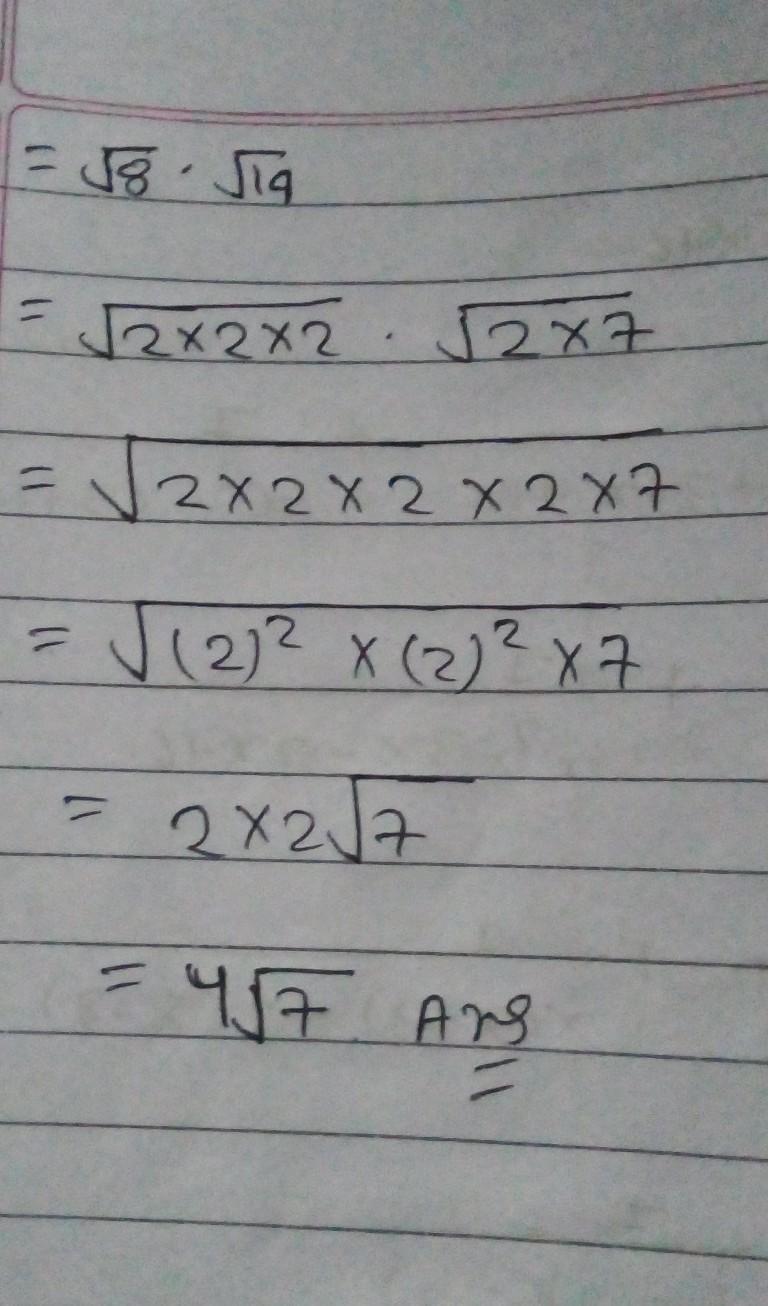 = √8 · √14
= √2×2×2 · √2×7
= √2×2×2×2×7
= √(2)² ×(2)² ×7
= 2×2√7
= 4√7 Ans